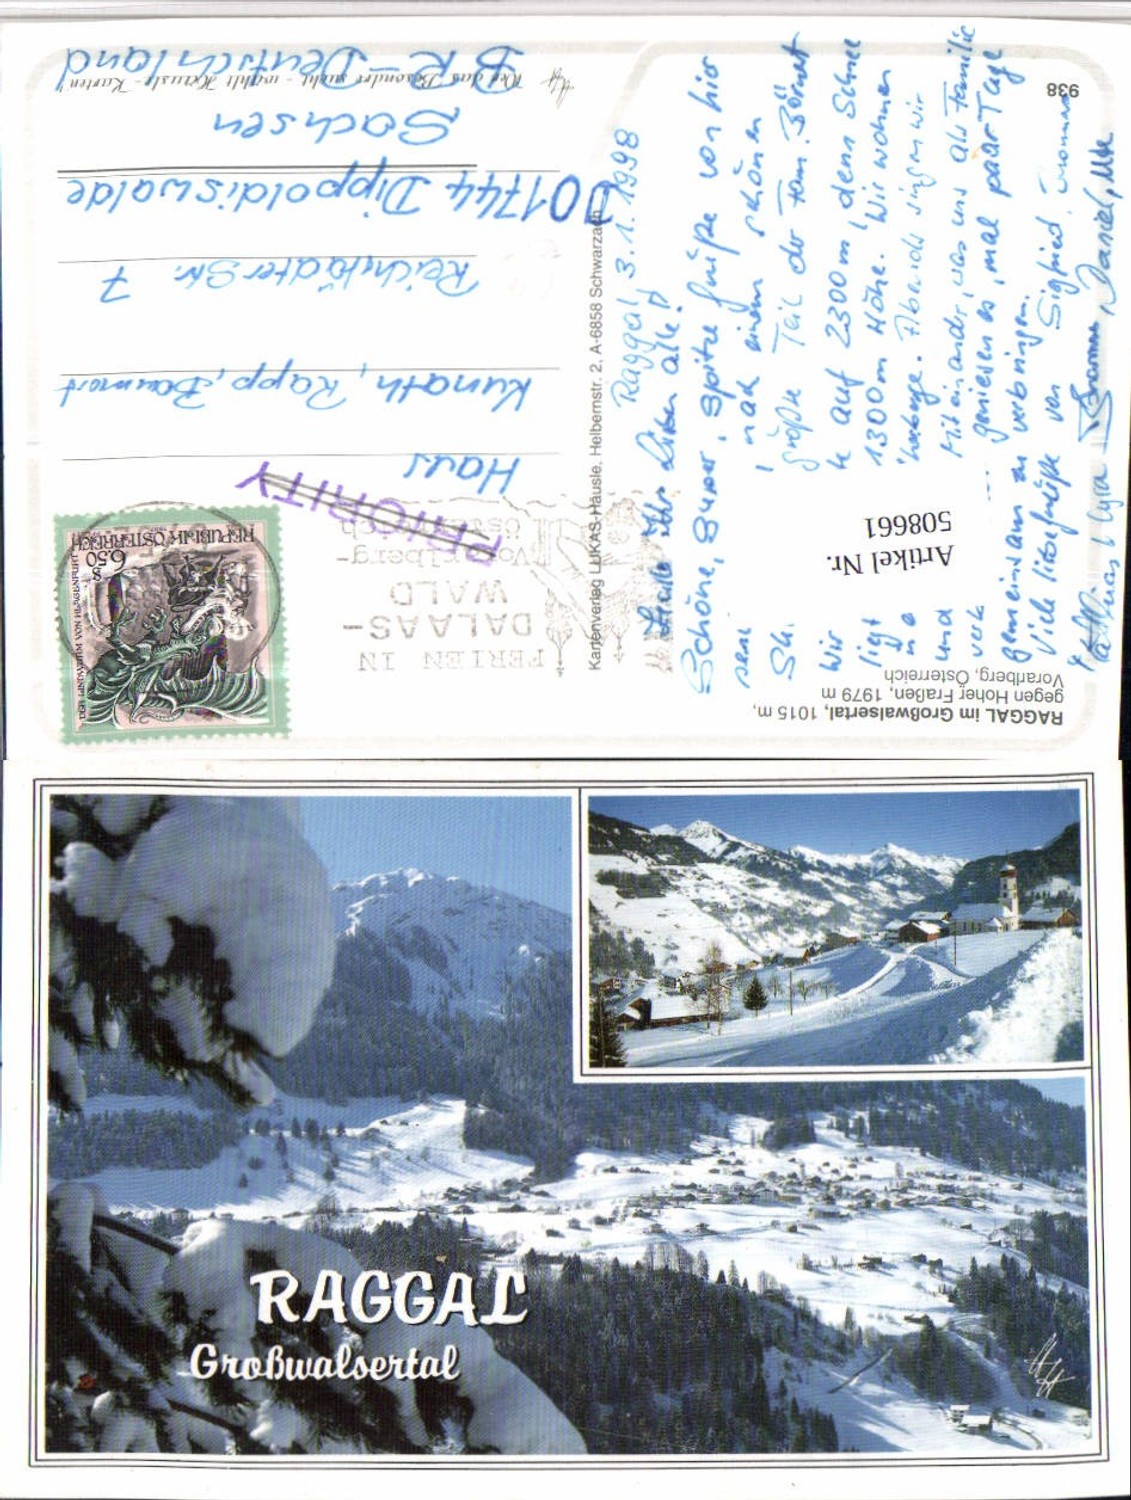 RAGGAL im Großwalsertal, 1015 m,
gegen Hoher Fraßen, 1979 m
Vorarlberg, Österreich
Artikel Nr.
508661
938
Wer das Besondre sucht - wählt Häusle-Karten"
Kartenverlag LUKAS-Häusle, Helbernstr. 2, A-6858 Schwarzach
FERIEN IN
DALAAS-
WALD
Vorarlberg-
österreich
PRIORITY
REPUBLIK ÖSTERREICH
6.50
S
DER LINDWURM VON KLAGENFURT
Haus
Kunath, Rapp, Baumort
Reichstädter Str. 7
D 01744 Dippoldiswalde
Sachsen
BR-Deutschland
Raggal, 3.1.1998
Ihr Lieben alle!
Schöne, Super, Spitze Grüße von hier
einem schönen
große Teil der Fam.
auf 2300 m, denn Schnee
ligt 1300 m Höhe. Wir wohnen
Abends singen wir
und Miteinander, was uns als Familie
genießen es, mal paar Tage
gemeinsam zu verbringen.
Viele liebe Grüße von Siegfried,
Lukas, Lydia Daniel, Ute
RAGGAL
Großwalsertal